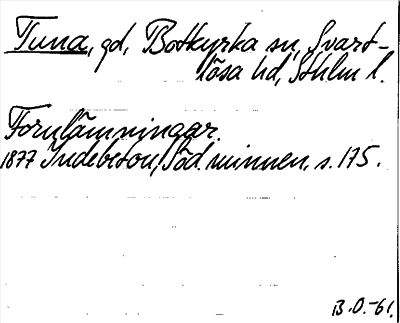 Tuna, gd, Botkyrka sn, Svart-
lösa hd, Sthlm l.
Fornlämningar.
1877 Indebetou, Söd. minnen, s. 175.
B.O.-61.